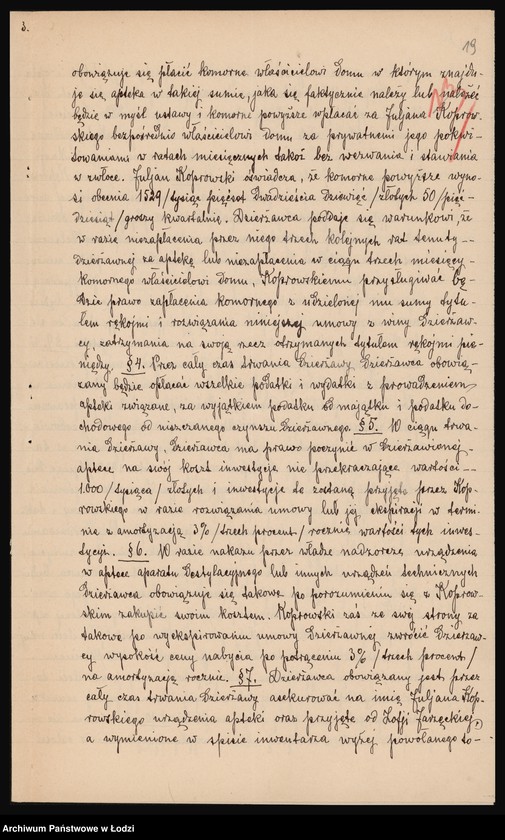 3.
19
obowiązuje się płacić komorne właścicielowi domu w którym znajdu-
je się apteka w takiej sumie, jaka się faktycznie należy lub należeć
będzie w myśl ustawy i komorne powyższe wpłacać za Juljana Koprow-
skiego bezpośrednio właścicielowi domu za prywatnemi jego pokwi-
towaniami w ratach miesięcznych także bez wezwania i stawiania
w zwłoce. Juljan Koprowski oświadcza, że komorne powyższe wyno-
si obecnie 1529 /tysiąc pięćset dwadzieścia dziewięć/ złotych 50 /pięć-
dziesiąt/ groszy kwartalnie. Dzierżawca poddaje się warunkowi, że
w razie niezapłacenia przez niego trzech kolejnych rat tenuty --
dzierżawnej za aptekę lub niezapłacenia w ciągu trzech miesięcy
komornego właścicielowi domu, Koprowskiemu przysługiwać bę-
dzie prawo zapłacenia komornego z udzielonej mu sumy tytu-
łem rękojmi i rozwiązania niniejszej umowy z winy dzierżaw-
cy, zatrzymania na swoją rzecz otrzymanych tytułem rękojmi pie-
niędzy. § 4. Przez cały czas trwania dzierżawy dzierżawca obowią-
zany będzie opłacać wszelkie podatki i wydatki z prowadzeniem
apteki związane, za wyjątkiem podatku od majątku i podatku do-
chodowego od niszczanego czynszu dzierżawnego. § 5. W ciągu trwa-
nia dzierżawy, dzierżawca ma prawo poczynić w dzierżawionej
aptece na swój koszt inwestycje nie przekraczające wartości --
1.000 /tysiąca/ złotych i inwestycje te zostaną przyjęte przez Kop-
rowskiego w razie rozwiązania umowy lub jej ekspiracji w termi-
nie z amortyzacją 3% /trzech procent/ rocznie wartości tych inwes-
tycji. § 6. W razie nakazu przez władze nadzorcze urządzenia
w aptece aparatu destylacyjnego lub innych urządzeń technicznych
dzierżawca obowiązuje się takowe po porozumieniu się z Koprow-
skim zakupić swoim kosztem. Koprowski zaś ze swej strony za
takowe po wyekspirowaniu umowy dzierżawnej zwrócić dzierżaw-
cy wysokość ceny nabycia po potrąceniu 3% /trzech procent/
na amortyzację rocznie. § 7. Dzierżawca obowiązany jest przez
cały czas trwania dzierżawy asekurować na imię Juljana Kop-
rowskiego urządzenia apteki oraz przyjęte od Zofji Jarzęckiej,
a wymienione w spisie inwentarza wyżej powołanego to-
Archiwum Państwowe w Łodzi